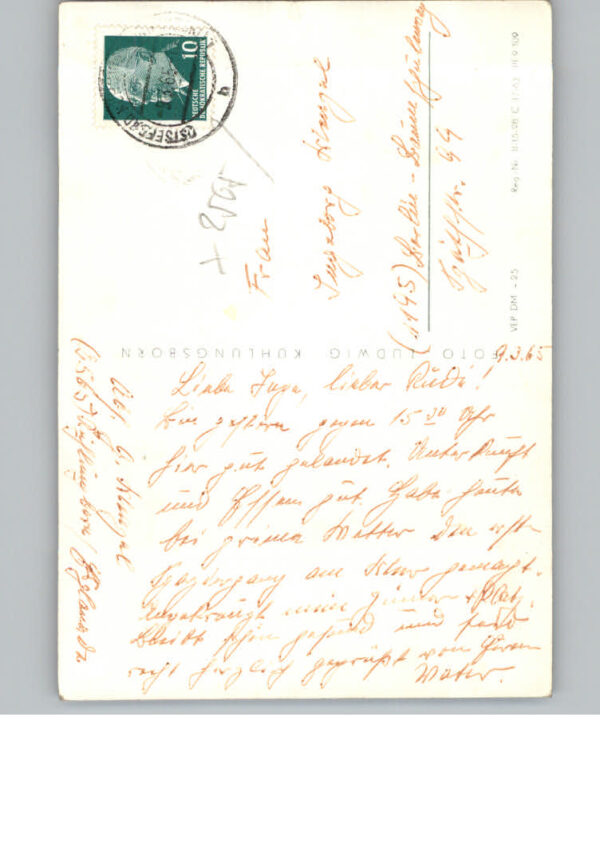 10
DEUTSCHE
DEMOKRATISCHE REPUBLIK
OSTSEEBAD
b
+ 2505
Frau
Ingeborg
(1195) Berlin - Baumschulenweg
99
VEB DM - 25
FOTO LUDWIG KÜHLUNGSBORN
9.3.65
Liebe Inge, lieber Rudi!
Bin gestern gegen 15 00 Uhr
hier gut gelandet. Unterkunft
und Essen gut. Habe heute
bei prima Wetter den erst.
Spaziergang am Meer gemacht.
mein Zimmer + Platz.
Bleibt schön gesund und seid
recht herzlich gegrüßt von Eurem
Vater.
Abs. G.
(2565) Kühlungsborn